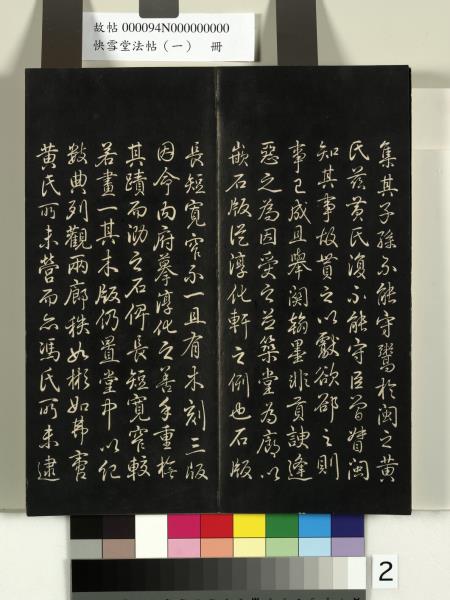 故帖 000094N000000000
快雪堂法帖（一） 冊
集其子孫不能守鬻於閩之黃
氏茲黃氏復不能守臣曾督閩
知其事故貢之以獻欲卻之則
事已成且舉關翰墨非貢諛逢
惡之為因受之並築堂為廊以
嵌石版從淳化軒之例也石版
長短寬窄不一且有木刻三版
因令內府摹淳化之善手重橅
其蹟而泐之石俾長短寬窄較
若畫一其木版仍置堂中以紀
數典列觀兩廊秩如彬如弗啻
黃氏所未營而亦馮氏所未逮
2